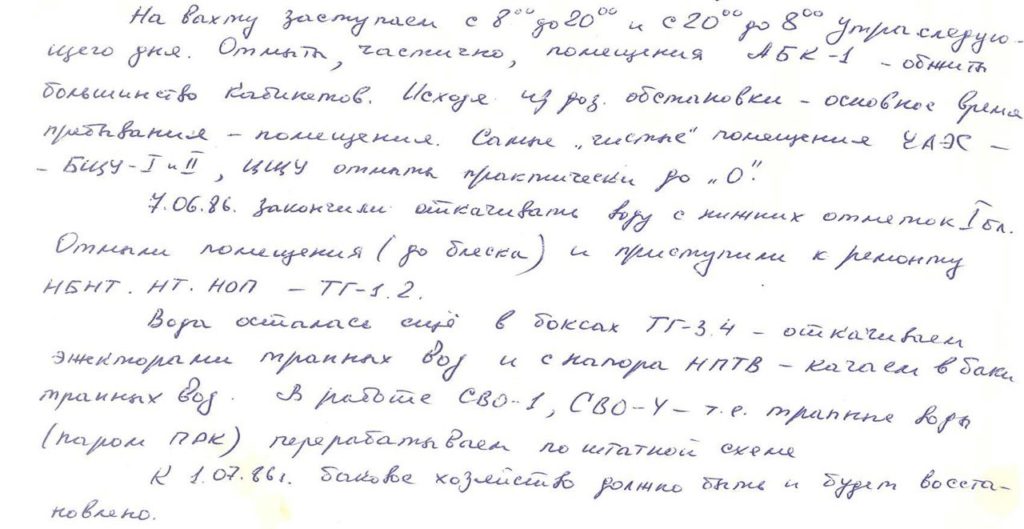 На вахту заступаем с 8⁰⁰ до 20⁰⁰ и с 20⁰⁰ до 8⁰⁰ утра следую-
щего дня. Отмыты, частично, помещения АБК-1 - обжиты
большинство кабинетов. Исходя из доз. обстановки - основное время
пребывания - помещения. Самые „чистые" помещения ЧАЭС -
- БЩУ-I и II, ЦЩУ отмыты практически до „0".
7.06.86. закончили откачивать воду с нижних отметок I бл.
Отмыли помещения (до блеска) и приступили к ремонту
НБНТ. НТ. НОП - ТГ-1.2.
Вода осталась ещё в боксах ТГ-3.4 - откачиваем
эжекторами трапных вод и с напора НПТВ - качаем в баки
трапных вод. В работе СВО-1, СВО-4 - т.е. трапные воды
(паром ПРК) перерабатываем по штатной схеме
К 1.07.86г. баковое хозяйство должно быть и будет восста-
новлено.